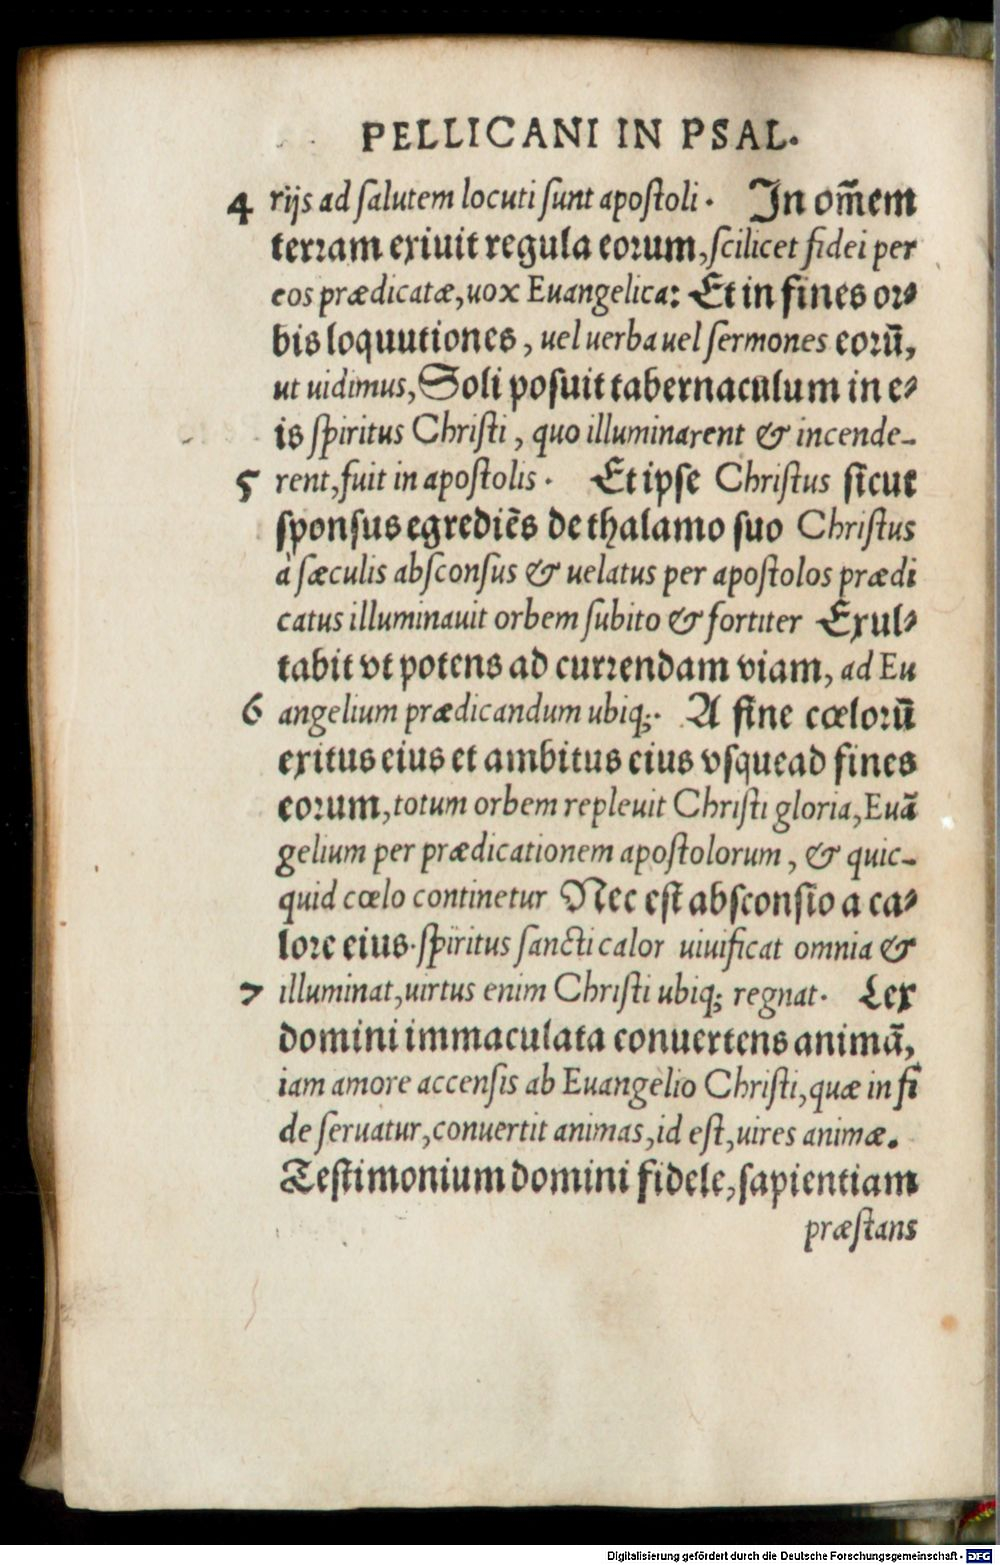 PELLICANI IN PSAL.
4 rijs ad ſalutem locuti ſunt apoſtoli. In om̄em
terram exiuit regula eorum, ſcilicet fidei per
eos prædicatæ, uox Euangelica: Et in fines or⸗
bis loquutiones, uel uerba uel ſermones eorū,
ut uidimus, Soli poſuit tabernaculum in e⸗
is ſpiritus Chriſti, quo illuminarent & incende-
5 rent, fuit in apoſtolis. Et ipſe Chriſtus ſicut
ſponſus egrediēs de thalamo ſuo Chriſtus
à ſæculis abſconſus & uelatus per apoſtolos prædi
catus illuminauit orbem ſubito & fortiter Exul⸗
tabit vt potens ad currendam viam, ad Eu
6 angelium prædicandum ubiq;. A fine cœlorū
exitus eius et ambitus eius vſquead fines
eorum, totum orbem repleuit Chriſti gloria, Euā
gelium per prædicationem apoſtolorum, & quic-
quid cœlo continetur Nec eſt abſconſio a ca⸗
lore eius. ſpiritus ſancti calor uiuificat omnia &
7 illuminat, uirtus enim Chriſti ubiq; regnat. Lex
domini immaculata conuertens animā,
iam amore accenſis ab Euangelio Chriſti, quæ in fi
de ſeruatur, conuertit animas, id eſt, uires animæ.
Teſtimonium domini fidele, ſapientiam
præſtans
Digitalisierung gefördert durch die Deutsche Forschungsgemeinschaft - DFG